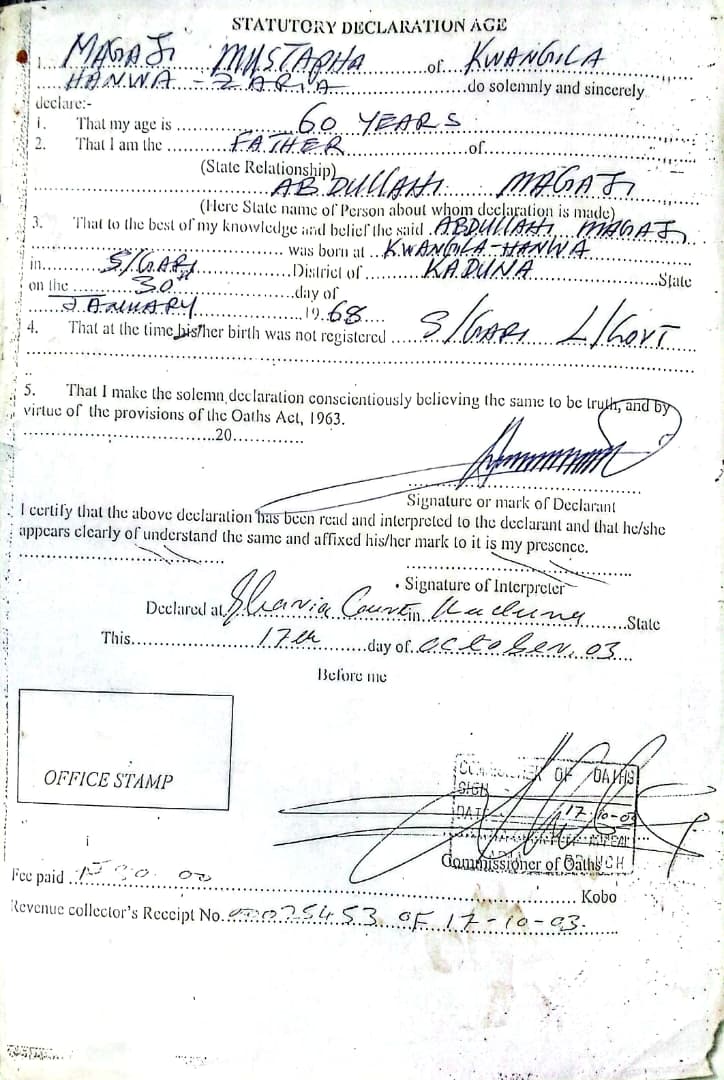 STATUTORY DECLARATION AGE
I. MAGAJI MUSTAPHA of KWANGILA
HANWA - ZARIA do solemnly and sincerely
declare:-
1. That my age is 60 YEARS
2. That I am the FATHER of
(State Relationship)
ABDULLAHI MAGAJI
(Here State name of Person about whom declaration is made)
3. That to the best of my knowledge and belief the said ABDULLAHI MAGAJI
was born at KWANGILA-HANWA
in S/GARI District of KADUNA State
on the 30th day of
JANUARY 1968
4. That at the time his/her birth was not registered S/GARI L/GOVT
5. That I make the solemn declaration conscientiously believing the same to be truth, and by
virtue of the provisions of the Oaths Act, 1963.
20
Signature or mark of Declarant
I certify that the above declaration has been read and interpreted to the declarant and that he/she
appears clearly of understand the same and affixed his/her mark to it is my presence.
Signature of Interpreter
Declared at Sharia Court in Kaduna State
This 17th day of October, 03
Before me
OFFICE STAMP
COMMISSIONER OF OATHS
SIGN
DATE 17-10-03
Commissioner of Oaths
Fee paid ₦30.00
Kobo
Revenue collector's Receipt No. 00025453 OF 17-10-03.